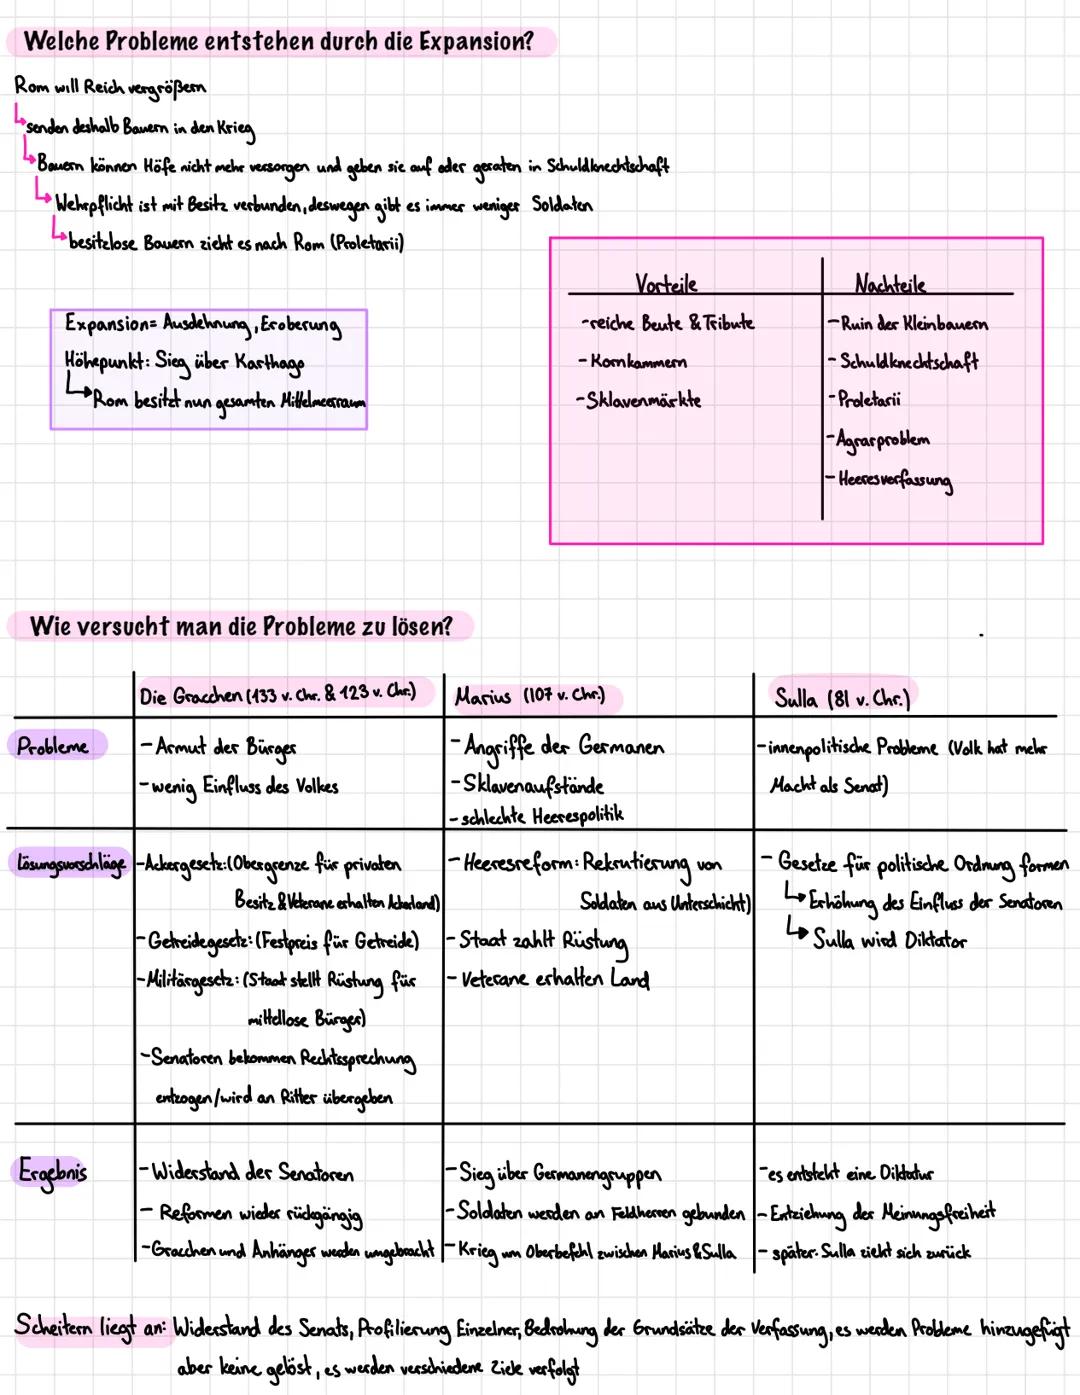 Welche Probleme entstehen durch die Expansion?
Rom will Reich vergrößern
senden deshalb Bauern in den Krieg
Bauern können Höfe nicht mehr versorgen und geben sie auf oder geraten in Schuldknechtschaft
Wehrpflicht ist mit Besitz verbunden, deswegen gibt es immer weniger Soldaten
besitzlose Bauern zieht es nach Rom (Proletarii)
Expansion= Ausdehnung, Eroberung
Höhepunkt: Sieg über Karthago
Rom besitzt nun gesamten Mittelmeerraum
Vorteile
-reiche Beute & Tribute
- Kornkammern
-Sklavenmärkte
Nachteile
-Ruin der Kleinbauern
- Schuldknechtschaft
-Proletarii
-Agrarproblem
- Heeresverfassung
Wie versucht man die Probleme zu lösen?
Die Gracchen (133 v. Chr. & 123 v. Chr.)
Marius (107 v. Chr.)
Sulla (81 v. Chr.)
Probleme
-Armut der Bürger
-wenig Einfluss des Volkes
-Angriffe der Germanen
-Sklavenaufstände
- schlechte Heerespolitik
-innenpolitische Probleme (Volk hat mehr
Macht als Senat)
Lösungsvorschläge
-Ackergesetz:(Obergrenze für privaten
Besitz & Veterane erhalten Ackerland)
-Getreidegesetz:(Festpreis für Getreide)
-Militärgesetz: (Staat stellt Rüstung für
mittellose Bürger)
-Senatoren bekommen Rechtssprechung
entzogen/wird an Ritter übergeben
-Heeresreform: Rekrutierung von
Soldaten aus Unterschicht)
-Staat zahlt Rüstung
- Veterane erhalten Land
- Gesetze für politische Ordnung formen
Erhöhung des Einfluss der Senatoren
Sulla wird Diktator
Ergebnis
-Widerstand der Senatoren
- Reformen wieder rückgängig
-Gracchen und Anhänger werden umgebracht
-Sieg über Germanengruppen
-Soldaten werden an Feldherren gebunden
-Krieg um Oberbefehl zwischen Marius & Sulla
-es entsteht eine Diktatur
-Entziehung der Meinungsfreiheit
- später: Sulla zieht sich zurück
Scheitern liegt an: Widerstand des Senats, Profilierung Einzelner, Bedrohung der Grundsätze der Verfassung, es werden Probleme hinzugefügt
aber keine gelöst, es werden verschiedene Ziele verfolgt